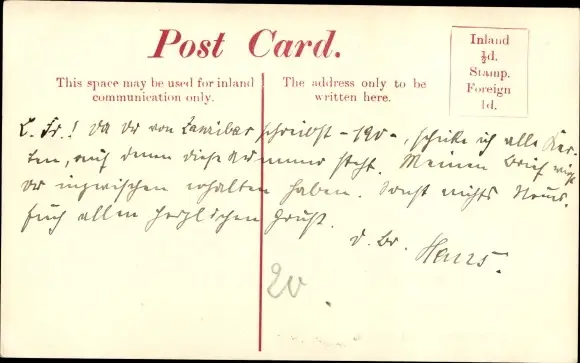 Post Card.
This space may be used for inland
communication only.
The address only to be
written here.
Inland
½d.
Stamp.
Foreign
1d.
L. Fr.! Da Du von Zanzibar schreibst -190-, schicke ich alle Kar-
ten, auf denen diese Nummer steht. Meinen Brief wirst
Du inzwischen erhalten haben. Sonst nichts Neues.
Euch allen herzlichen Gruß.
D. Br. Hans.
20